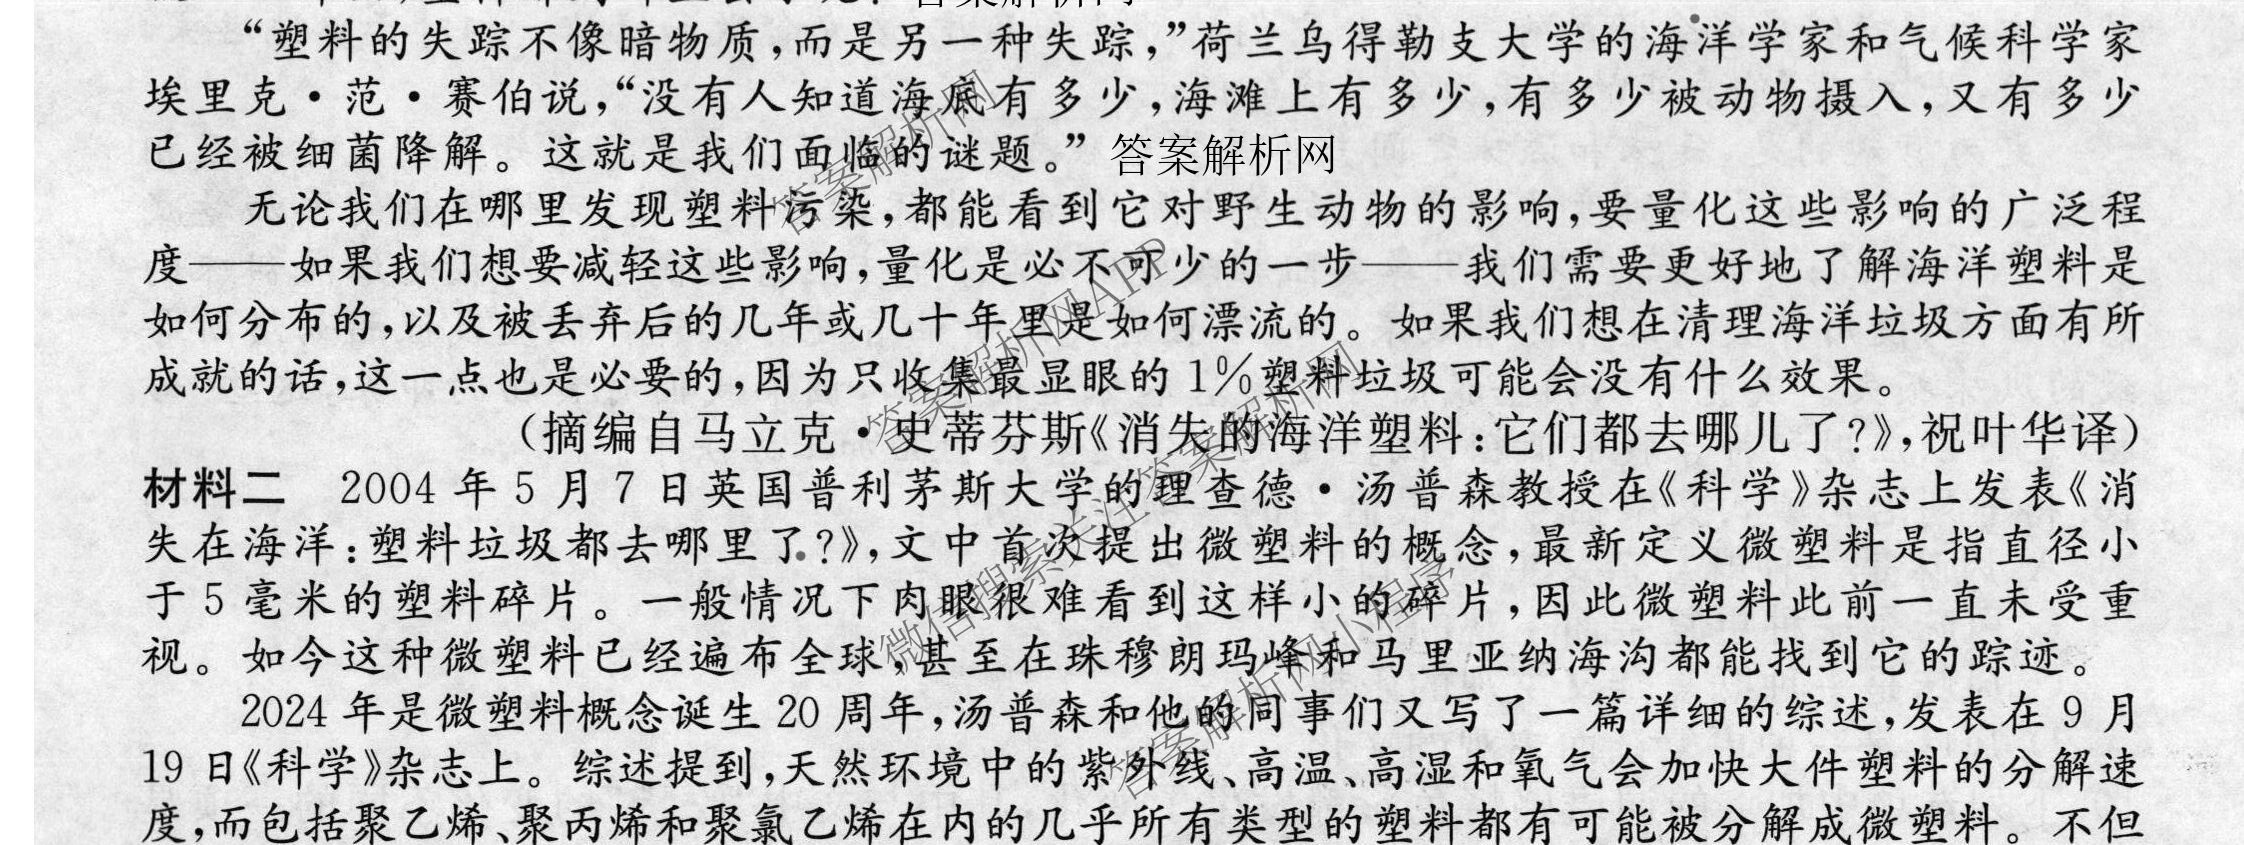 “塑料的失踪不像暗物质,而是另一种失踪,”荷兰乌得勒支大学的海洋学家和气候科学家
埃里克·范·赛伯说,“没有人知道海底有多少,海滩上有多少,有多少被动物摄入,又有多少
已经被细菌降解。这就是我们面临的谜题。” 答案解析网
无论我们在哪里发现塑料污染,都能看到它对野生动物的影响,要量化这些影响的广泛程
度——如果我们想要减轻这些影响,量化是必不可少的一步——我们需要更好地了解海洋塑料是
如何分布的,以及被丢弃后的几年或几十年里是如何漂流的。如果我们想在清理海洋垃圾方面有所
成就的话,这一点也是必要的,因为只收集最显眼的1%塑料垃圾可能会没有什么效果。
(摘编自马立克·史蒂芬斯《消失的海洋塑料:它们都去哪儿了?》,祝叶华译)
材料二 2004年5月7日英国普利茅斯大学的理查德·汤普森教授在《科学》杂志上发表《消
失在海洋:塑料垃圾都去哪里了?》,文中首次提出微塑料的概念,最新定义微塑料是指直径小
于5毫米的塑料碎片。一般情况下肉眼很难看到这样小的碎片,因此微塑料此前一直未受重
视。如今这种微塑料已经遍布全球,甚至在珠穆朗玛峰和马里亚纳海沟都能找到它的踪迹。
2024年是微塑料概念诞生20周年,汤普森和他的同事们又写了一篇详细的综述,发表在9月
19日《科学》杂志上。综述提到,天然环境中的紫外线、高温、高湿和氧气会加快大件塑料的分解速
度,而包括聚乙烯、聚丙烯和聚氯乙烯在内的几乎所有类型的塑料都有可能被分解成微塑料。不但
答案解析网
答案解析网APP
微信搜索关注:答案解析网
答案解析网小程序